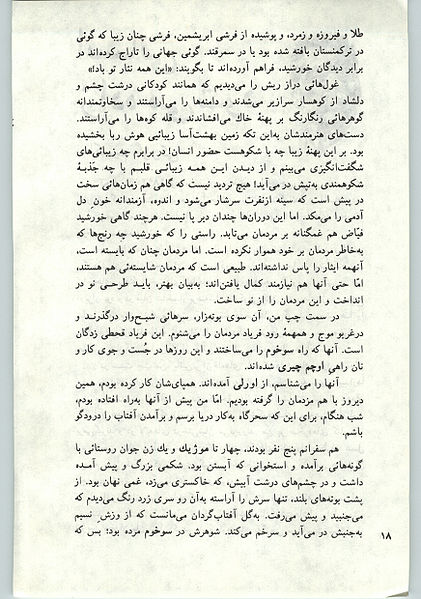 طلا و فیروزه و زمرد، و پوشیده از فرشی ابریشمین، فرشی چنان زیبا که گوئی
در ترکمنستان بافته شده بود یا در سمرقند. گوئی جهانی را تاراج کرده‌اند در
برابر دیدگان خورشید، فراهم آورده‌اند تا بگویند: «این همه نثار تو باد!»
غول‌هائی دراز ریش را می‌دیدیم که همانند کودکانی درشت چشم و
دلشاد از کوهسار سرازیر می‌شدند و دامنه‌ها را می‌آراستند و سخاوتمندانه
گوهرهائی رنگارنگ بر پهنهٔ خاك می‌افشاندند و قله کوه‌ها را می‌آراستند.
دست‌های هنرمندشان به‌این تکه زمین بهشت‌آسا زیبائیی هوش ربا بخشیده
بود. بر این پهنهٔ زیبا چه با شکوهست حضور انسان! در برابرم چه زیبائی‌های
شگفت‌انگیزی می‌بینم و از دیدن این همه زیبائی قلبم با چه جذبهٔ
شکوهمندی به‌تپش در می‌آید! هیچ تردید نیست که گاهی هم زمان‌هائی سخت
در پیش است که سینه ازنفرت سرشار می‌شود و اندوه، آزمندانه خون دل
آدمی را می‌مکد. اما این دوران‌ها چندان دیر پا نیست. هرچند گاهی خورشید
فیّاض هم غمگنانه بر مردمان می‌تابد. راستی را که خورشید چه رنج‌ها که
به‌خاطر مردمان بر خود هموار نکرده است. اما مردمان چنان که بایسته است،
آنهمه ایثار را پاس نداشته‌اند. طبیعی است که مردمان شایسته‌ئی هم هستند،
امّا حتی آنها هم نیازمند کمال یافتن‌اند؛ به‌بیان بهتر، باید طرحی نو در
انداخت و این مردمان را از نو ساخت.
در سمت چپ من، آن سوی بوته‌زار، سرهائی شبح‌وار درگذرند و
درغریو موج و همهمهٔ رود فریاد مردمان را می‌شنوم. این فریاد قحطی زدگان
است. آنها که راه سوخوم را می‌ساختند و این روزها در جُست و جوی کار و
نان راهی اوچم چیری شده‌اند.
آنها را می‌شناسم، از اورلی آمده‌اند. همپای‌شان کار کرده بودم، همین
دیروز با هم مزدمان را گرفته بودیم. امّا من پیش از آنها به‌راه افتاده بودم،
شب هنگام، برای این که سحرگاه به‌کار دریا برسم و برآمدن آفتاب را درودگو
باشم.
هم سفرانم پنج نفر بودند، چهار تا موژیك و یك زن جوان روستائی با
گونه‌هائی برآمده و استخوانی که آبستن بود. شکمی بزرگ و پیش آمده
داشت و در چشم‌های درشت آبیش، که خاکستری می‌زد، غمی نهان بود. از
پشت بوته‌های بلند، تنها سرش را آراسته به‌آن رو سری زرد رنگ می‌دیدم که
می‌جنبید و پیش می‌رفت. به‌گل آفتاب‌گردان می‌مانست که از وزش نسیم
به‌جنبش در می‌آید و سرخم می‌کند. شوهرش در سوخوم مرده بود؛ بس که
۱۸